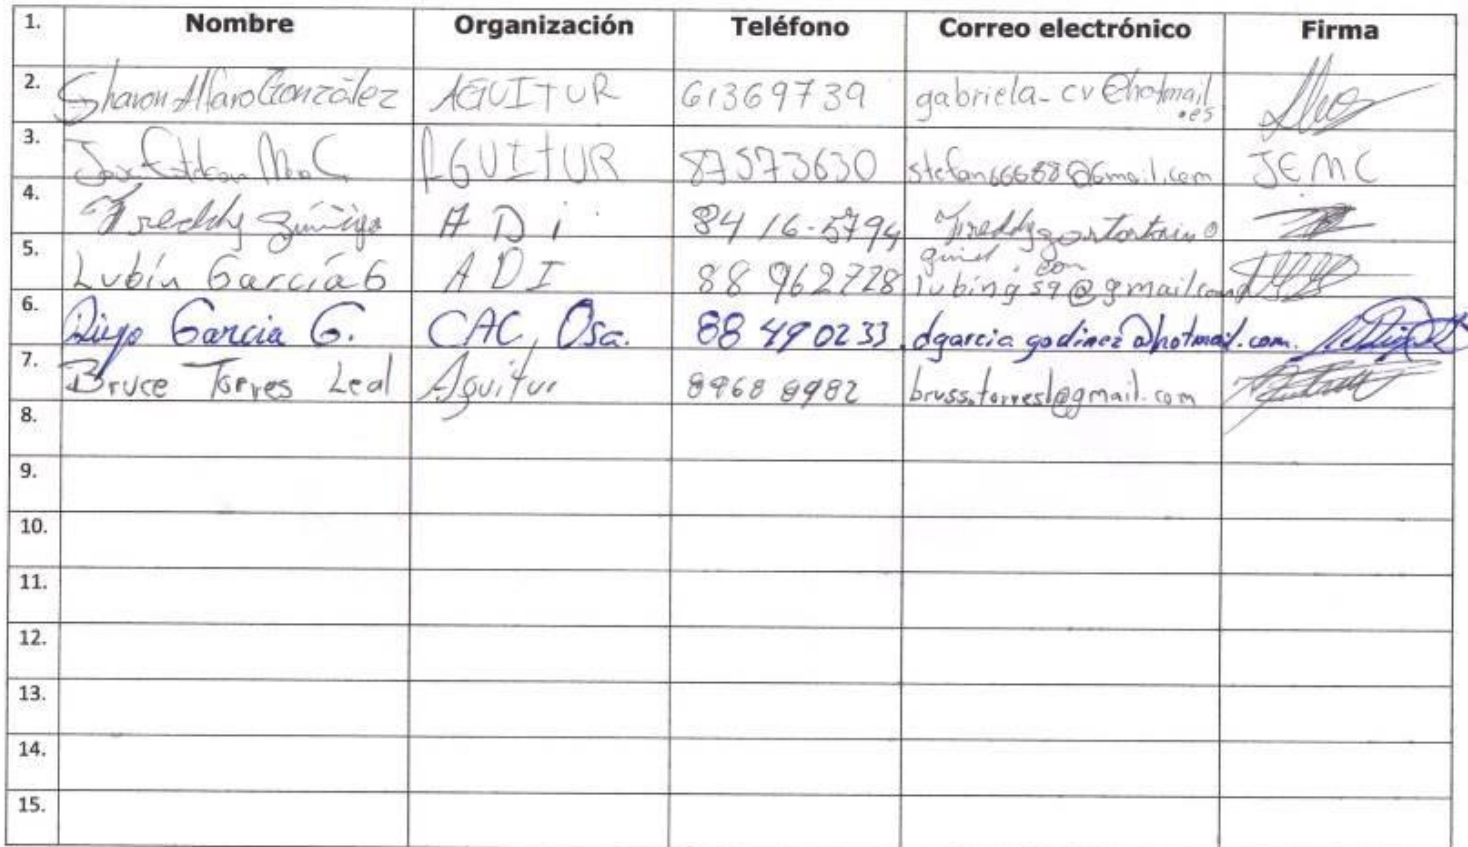 1. Nombre Organización Teléfono Correo electrónico Firma
2. Sharon Alfaro González AGUITUR 61369739 gabriela-cv@hotmail.es
3. AGUITUR 87573630 stefan66688@Gmail.com JEMC
4. Freddy Zúñiga A D i 84 16-5794
5. Lubín García G A D I 88 962728 lubing59@gmail.com
6. Diego Garcia G. CAC, Osa. 88 490233 dgarcia godinez@hotmail.com.
7. Bruce Torres Leal Aguitur 8968 8982 bruss.torresl@gmail.com
8.
9.
10.
11.
12.
13.
14.
15.